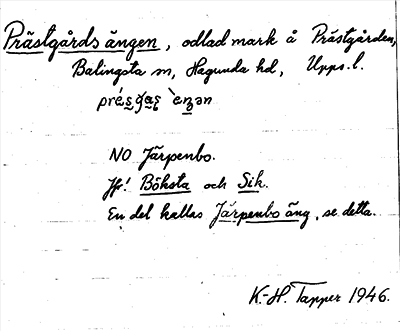 Prästgårds ängen, odlad mark å Prästgården,
Balingsta sn, Hagunda hd, Upps. l.
NO Järpenbo.
Jfr! Böksta och Sik.
En del kallas Järpenbo äng, se detta.
K.-H. Tapper 1946.